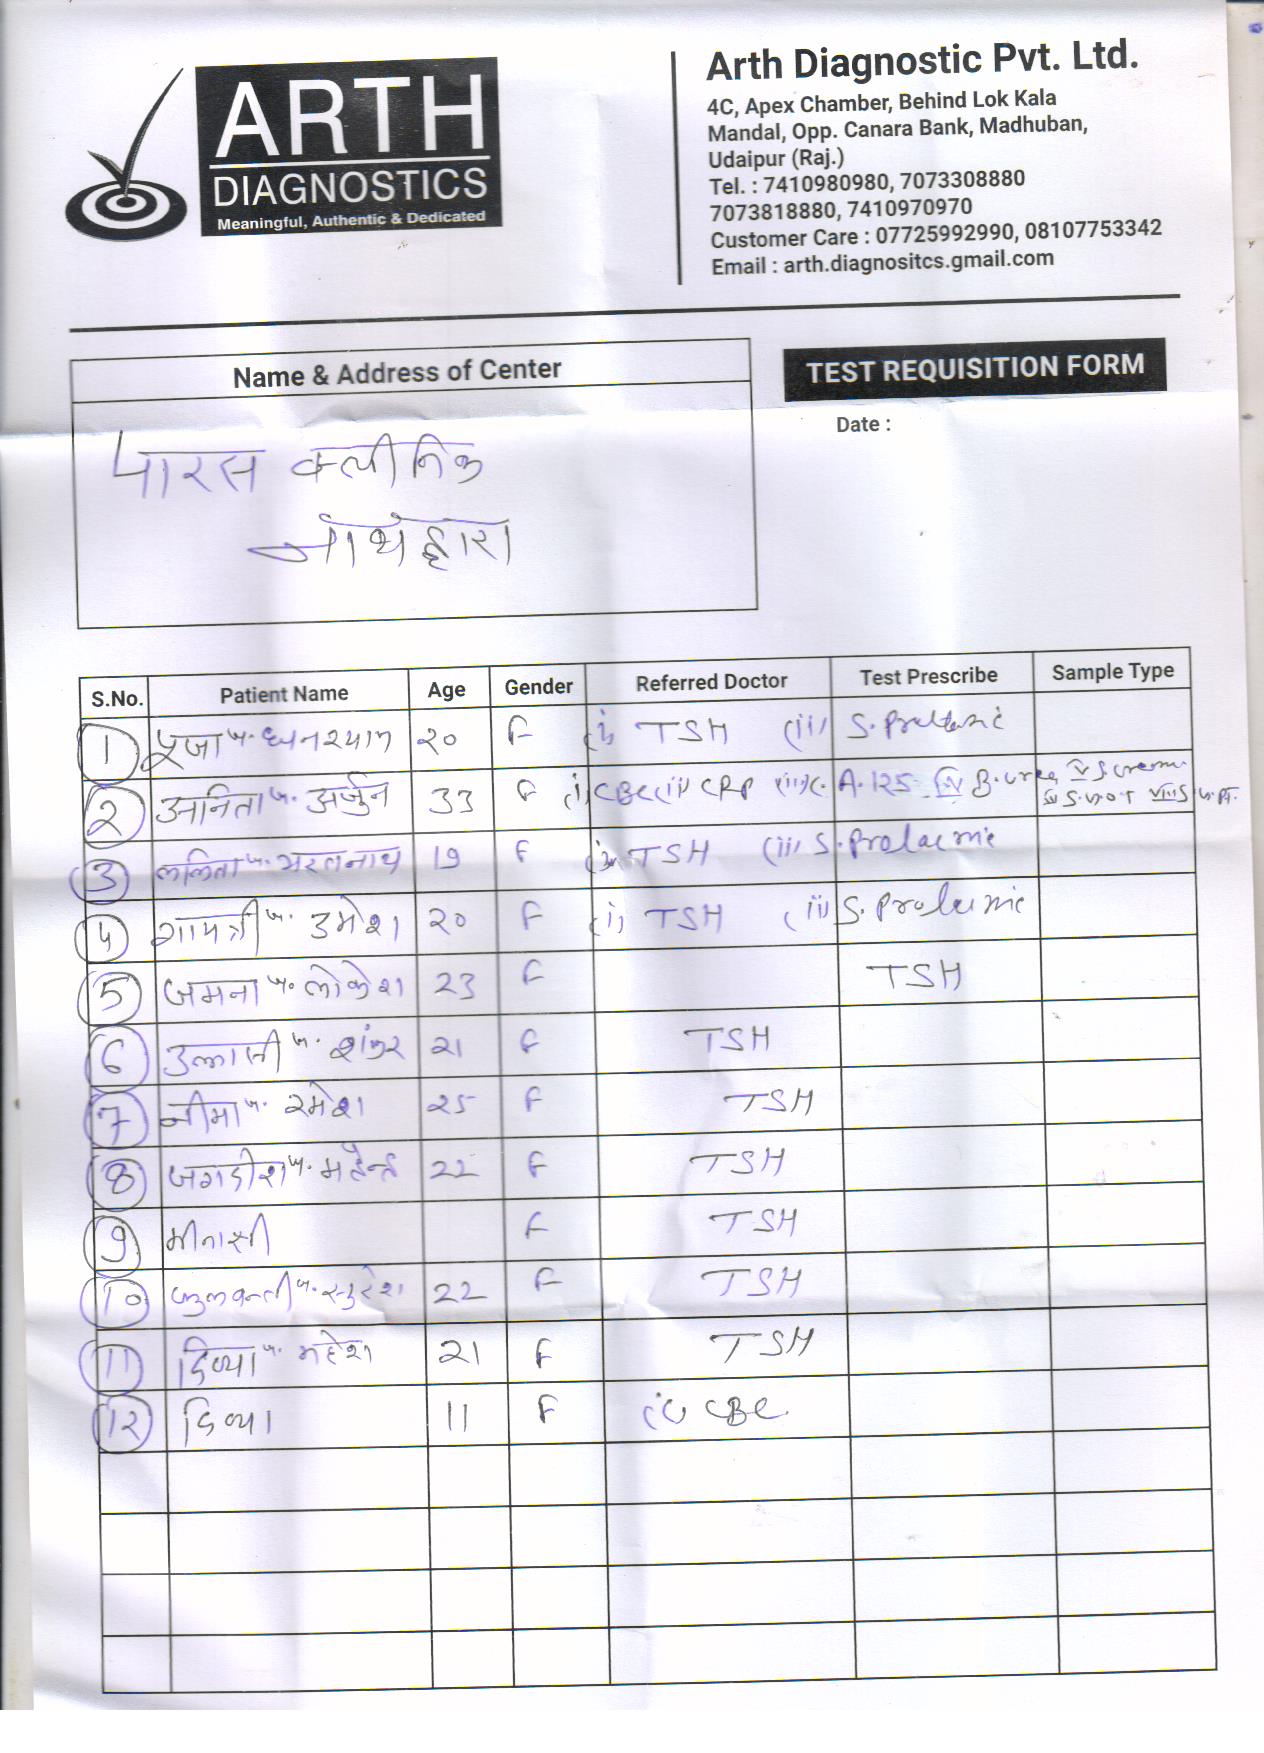 ARTH
DIAGNOSTICS
Meaningful, Authentic & Dedicated
Arth Diagnostic Pvt. Ltd.
4C, Apex Chamber, Behind Lok Kala
Mandal, Opp. Canara Bank, Madhuban,
Udaipur (Raj.)
Tel. : 7410980980, 7073308880
7073818880, 7410970970
Customer Care : 07725992990, 08107753342
Email : arth.diagnositcs.gmail.com
Name & Address of Center
TEST REQUISITION FORM
Date :
पारस क्लीनिक
नाथद्वारा
S.No. Patient Name Age Gender Referred Doctor Test Prescribe Sample Type
1 पूजा घनश्याम २० F (i) TSH (ii) S.
2 अनिता अर्जुन 33 F (i) CBC (ii) CRP (iii) C.A.125 IV B.urea V
3 ललिता 19 F (i) TSH (ii) S.
4 गायत्री उमेश २० F (i) TSH (ii) S.
5 जमना लोकेश 23 F TSH
6 शंकर २1 F TSH
7 सीमा रमेश २5 F TSH
8 जगदीश महेन्द्र 22 F TSH
9 मीनाक्षी F TSH
10 सुरेश 22 F TSH
11 दिव्या महेश 21 F TSH
1२ दिव्या 11 F (i) CBC